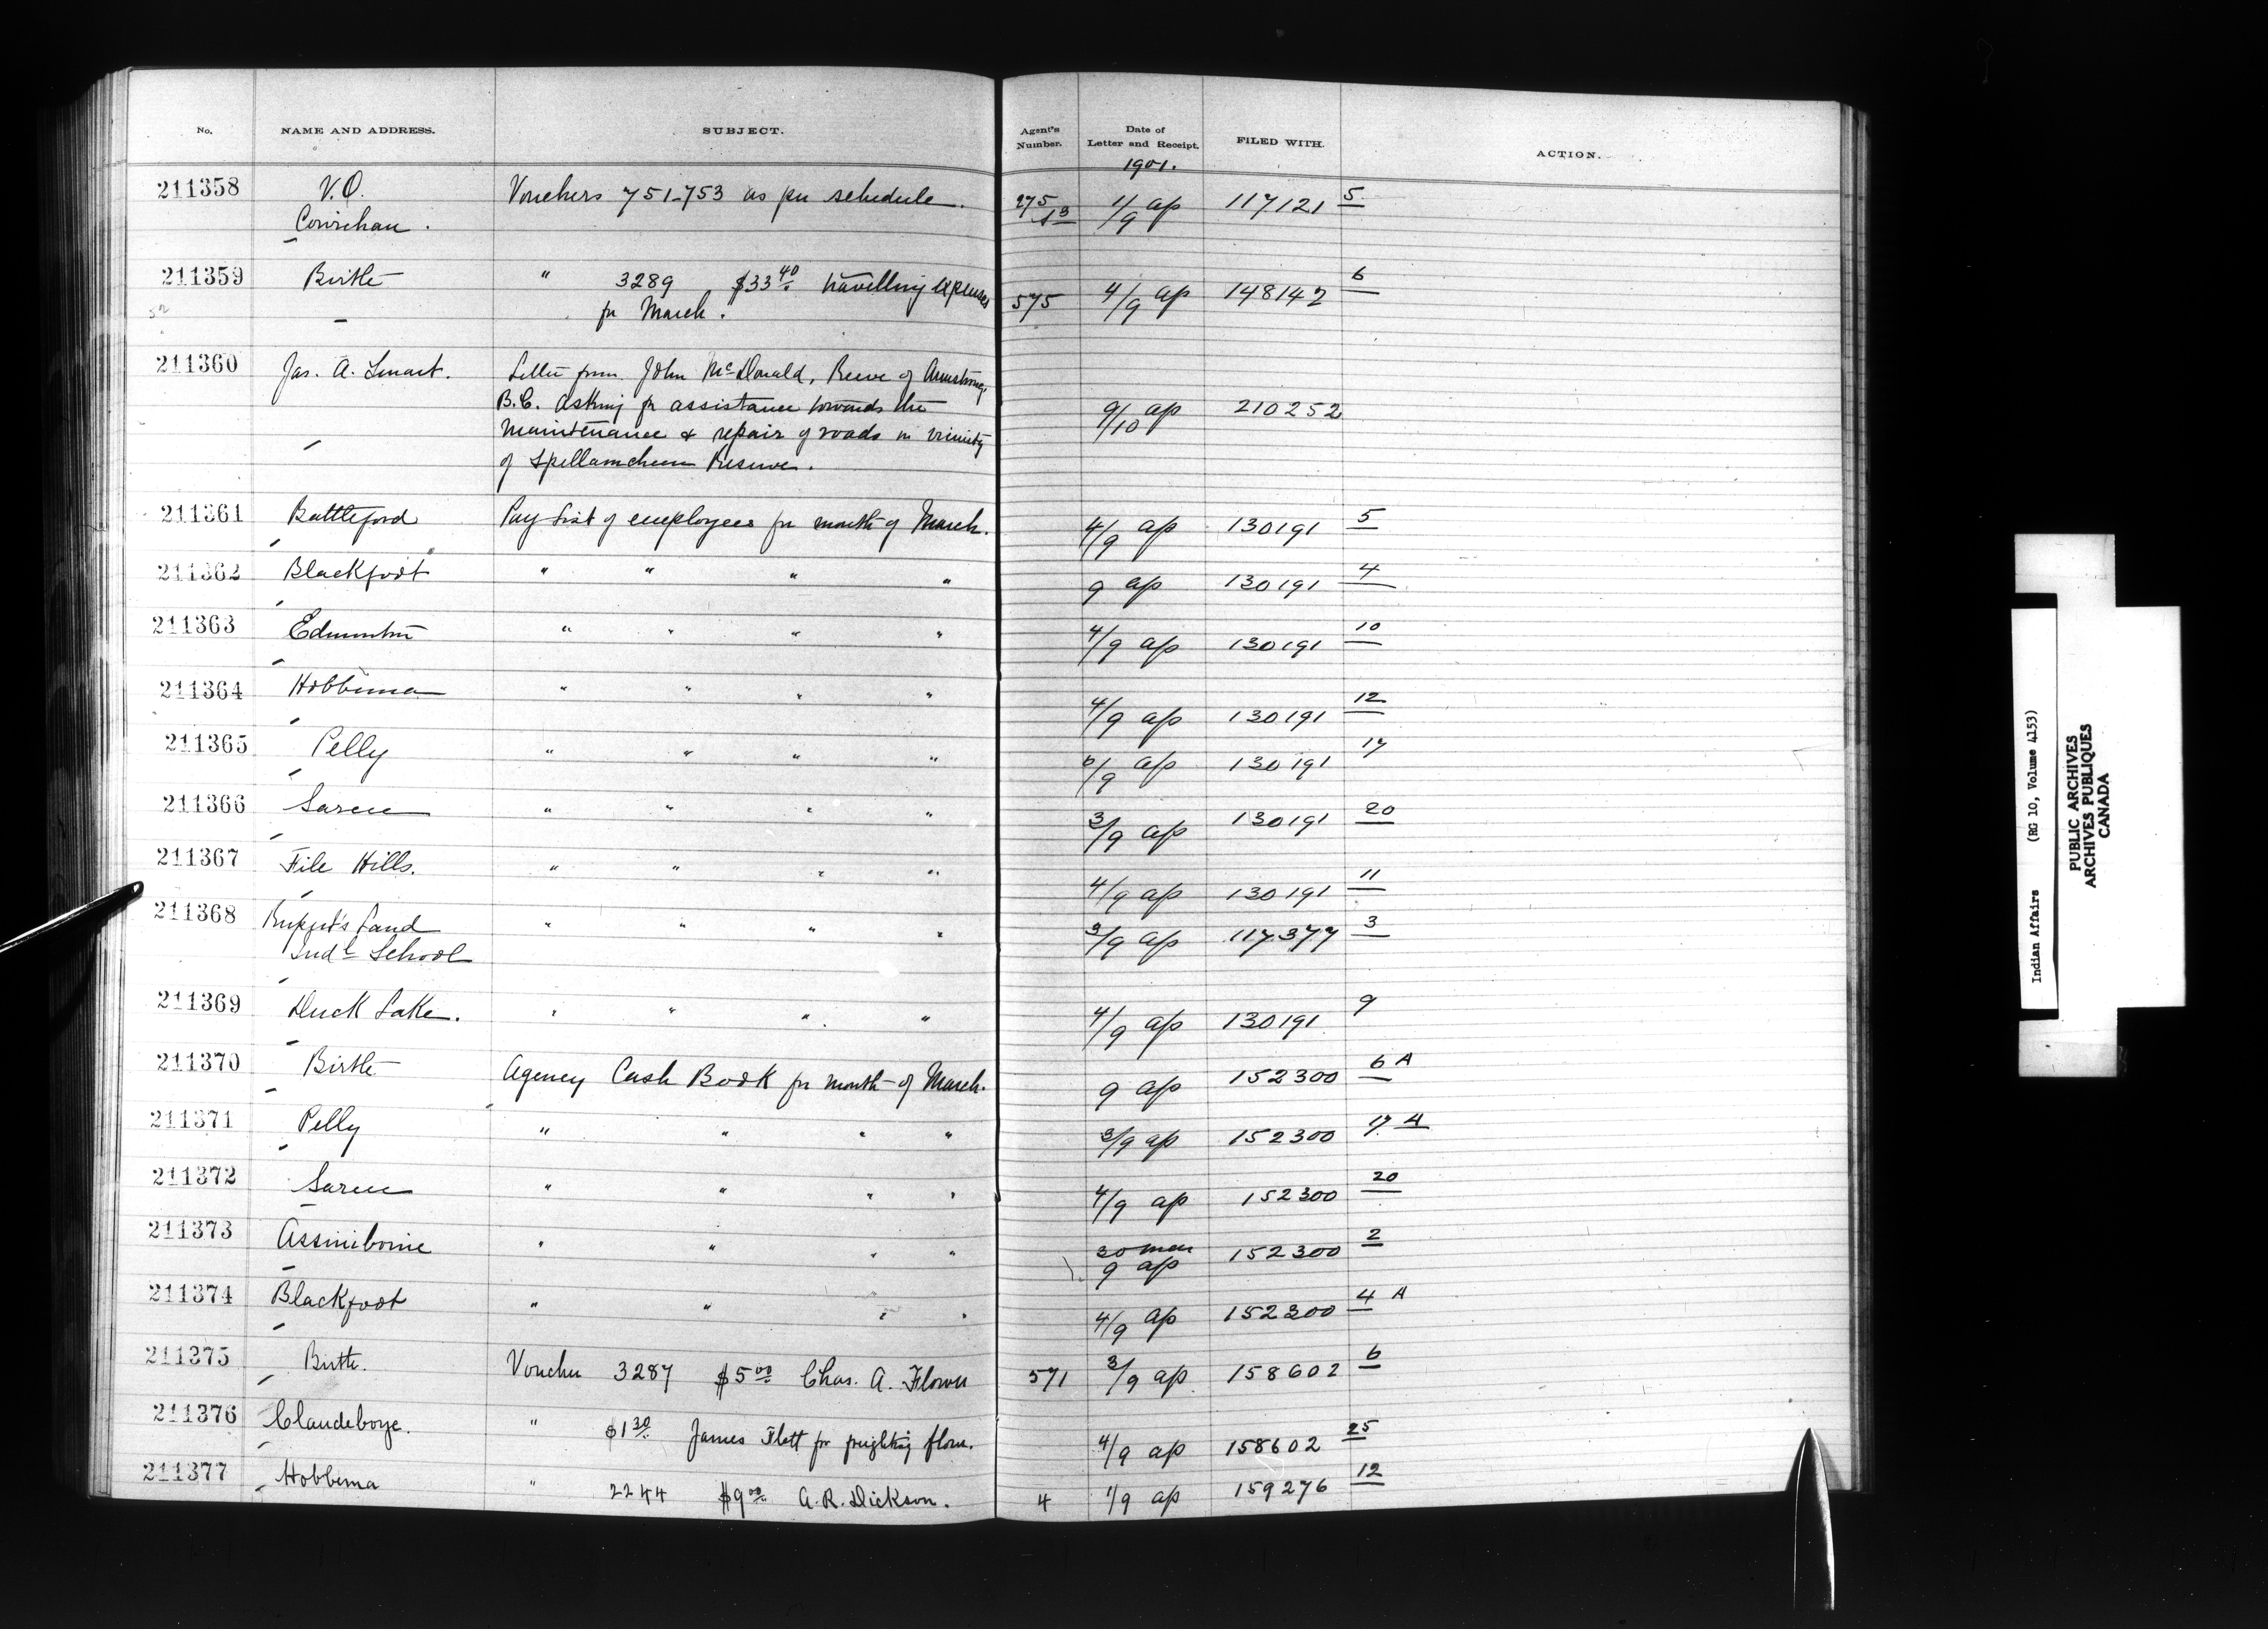 No. NAME AND ADDRESS. SUBJECT. Agent's Number. Date of Letter and Receipt. FILED WITH. ACTION.
1901.
211358 V.O. Vouchers 751-753 as per schedule. 275 1/9 ap 117121 5
Cowichan.
211359 Birtle " 3289 $33 40 travelling expenses 575 4/9 ap 148142 6
for March.
211360 Jas. A. Smart. Letter from John McDonald, Reeve of Armstrong,
B.C. asking for assistance towards the 9/10 ap 210252
maintenance & repair of roads in vicinity
of Spellamcheen Reserve.
211361 Battleford Pay List of employees for month of March. 4/9 ap 130191 5
211362 Blackfoot " " " " 9 ap 130191 4
211363 Edmonton " " " " 4/9 ap 130191 10
211364 Hobbema " " " " 4/9 ap 130191 12
211365 Pelly " " " " 6/9 ap 130191 17
211366 Sarcee " " " " 3/9 ap 130191 20
211367 File Hills. " " " " 4/9 ap 130191 11
211368 Rupert's Land " " " " 3/9 ap 117377 3
Indl School
211369 Duck Lake. " " " " 4/9 ap 130191 9
211370 Birtle Agency Cash Book for month of March. 9 ap 152300 6 A
211371 Pelly " " " " 3/9 ap 152300 17 A
211372 Sarcee " " " " 4/9 ap 152300 20
211373 Assiniboine " " " " 30 mar 9 ap 152300 2
211374 Blackfoot " " " " 4/9 ap 152300 4 A
211375 Birtle. Voucher 3287 $5 00 Chas. A. Flower 571 3/9 ap 158602 6
211376 Clandeboye. " $1 30 James Flett for freighting flour. 4/9 ap 158602 25
211377 Hobbema " 2244 $9 00 A.R. Dickson. 4 1/9 ap 159276 12
Indian Affairs (RG 10, Volume 4153)
PUBLIC ARCHIVES
ARCHIVES PUBLIQUES
CANADA